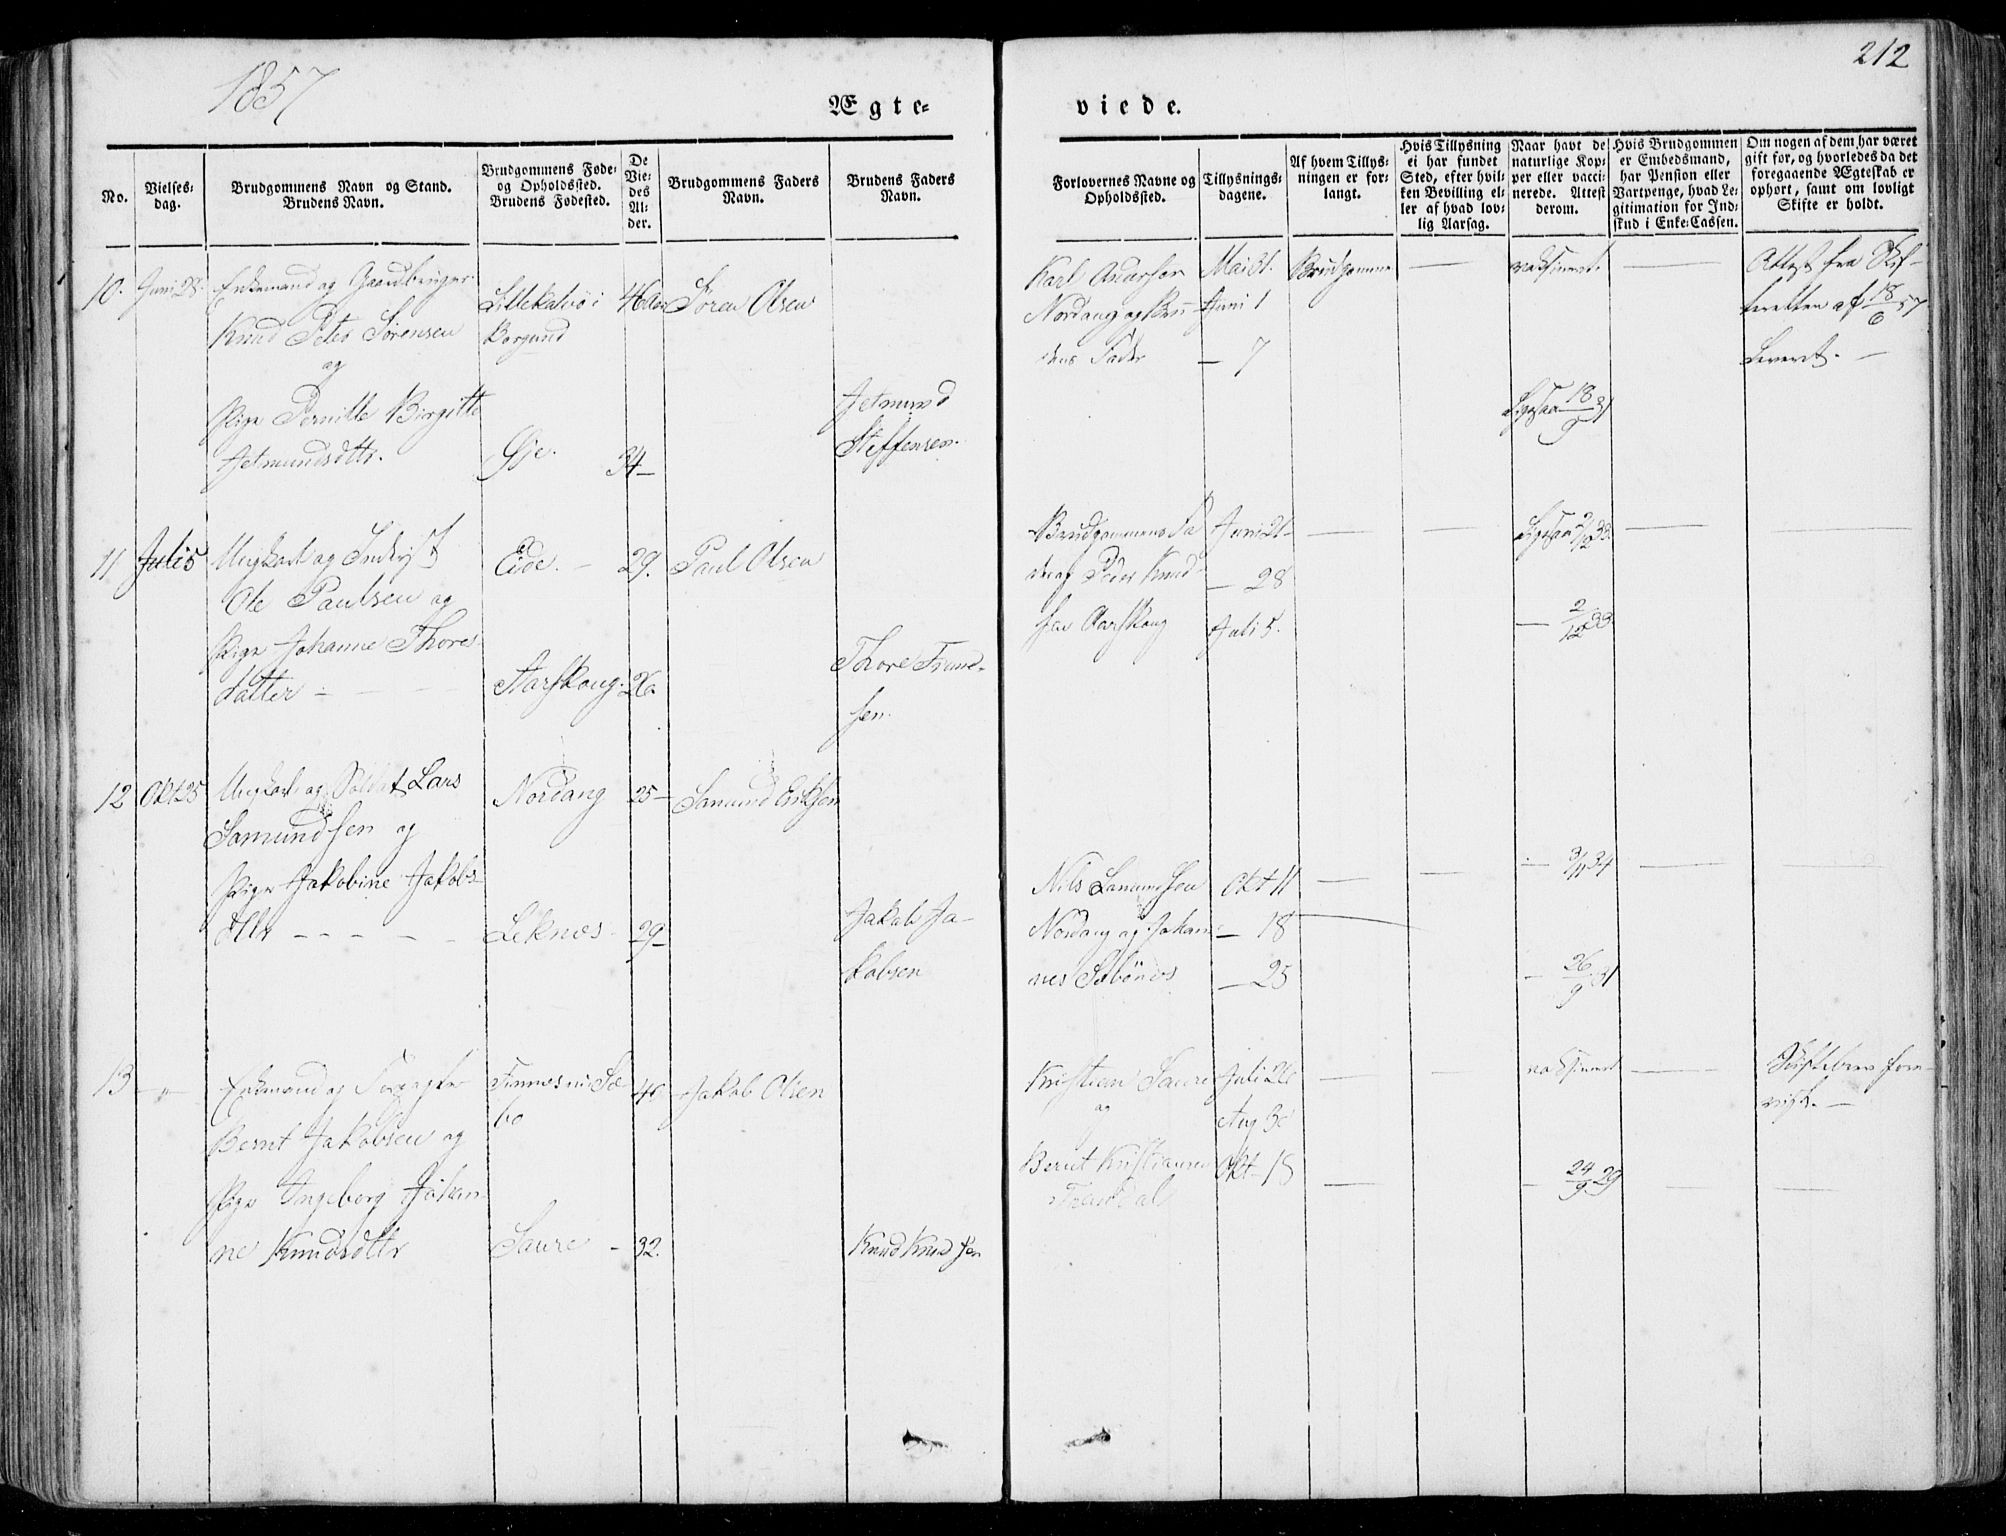 1857
212
Ægte-
viede.
No.
Vielses-
dag.
Brudgommens Navn og Stand.
Brudens Navn.
Brudgommens Føde-
og Opholdssted.
Brudens Fødested.
De
Vie-
des
Al-
der.
Brudgommens Faders
Navn.
Brudens Faders
Navn.
Forlovernes Navne og
Opholdssted.
Tillysnings-
dagene.
Af hvem Tillys-
ningen er for-
langt.
Hvis Tillysning
ei har fundet
Sted, efter hvil-
ken Bevilling el-
ler af hvad lov-
lig Aarsag.
Naar havt de
naturlige Kop-
per eller vacci-
nerede. Attest
derom.
Hvis Brudgommen
er Embedsmand,
har Pension eller
Vartpenge, hvad Le-
gitimation for Ind-
skud i Enke-Cassen.
Om nogen af dem har været
gift før, og hvorledes da det
foregaaende Ægteskab er
ophørt, samt om lovligt
Skifte er holdt.
10. Juni 28. Enkemand og Gaardbruger
Knud Peter Sørensen
og
Pige Pernille Birgitte
Jetmundsdttr.
Lillekalvø i
Borgund
Øje.
34
Søren Olsen
Jetmund
Steffensen.
Karl
Nordang og Bru-
dens Fader
Mai 31.
Juni 1
— 7
Brudgommen
—
vaksineret.
—
Attest fra Skif-
teretten af 18/6 57
Leveret. —
Ligesaa 18/9 31
11 Juli 5 Ungkarl og
Ole Paulsen og
Pige Johanne Thore-
datter
Eide. —
Aarskoug.
29.
26
Paul Olsen
Thore
sen.
Brudgommens Fa
der og Peder Knud-
sen Aarskoug
Juni 21
— 28
Juli 5.
—
—
Ligesaa 2/12 33.
— 2/12 33
—
—
12 Okt 25 Ungkarl og Soldat Lars
Samundsen og
Pige Jakobine Jakobs
dttr
Nordang
Leknes
25—
29—
Samund Eriksen
Jakob Ja-
kobsen
Nils Samundsen
Nordang og Johan-
nes
Okt 11
— 18
— 25
—
—
— 3/11 34
— 26/9 31
—
—
13 — " — Enkemand og
Bernt Jakobsen og
Pige Ingeborg Johan-
ne Knudsdttr
Saure —
32.
Jakob Olsen
Knud Knudsen
Kristian Saure
og
Bernt Kristiansen
Juli 26
Aug 30
Okt 18
—
—
vaksineret
— 24/9 29
—
Skiftebrev fore-
vist. —